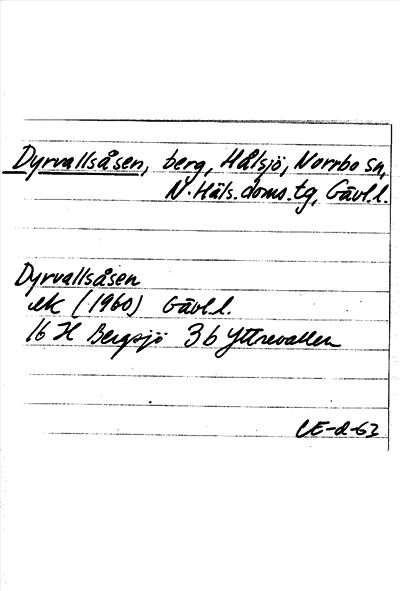 Dyrvallsåsen, berg, Hålsjö, Norrbo sn,
N. Häls. doms. tg, Gävl.l.
Dyrvallsåsen
ek (1960) Gävl.l.
16 H Bergsjö 3b Yttrevallen
CE-2-62